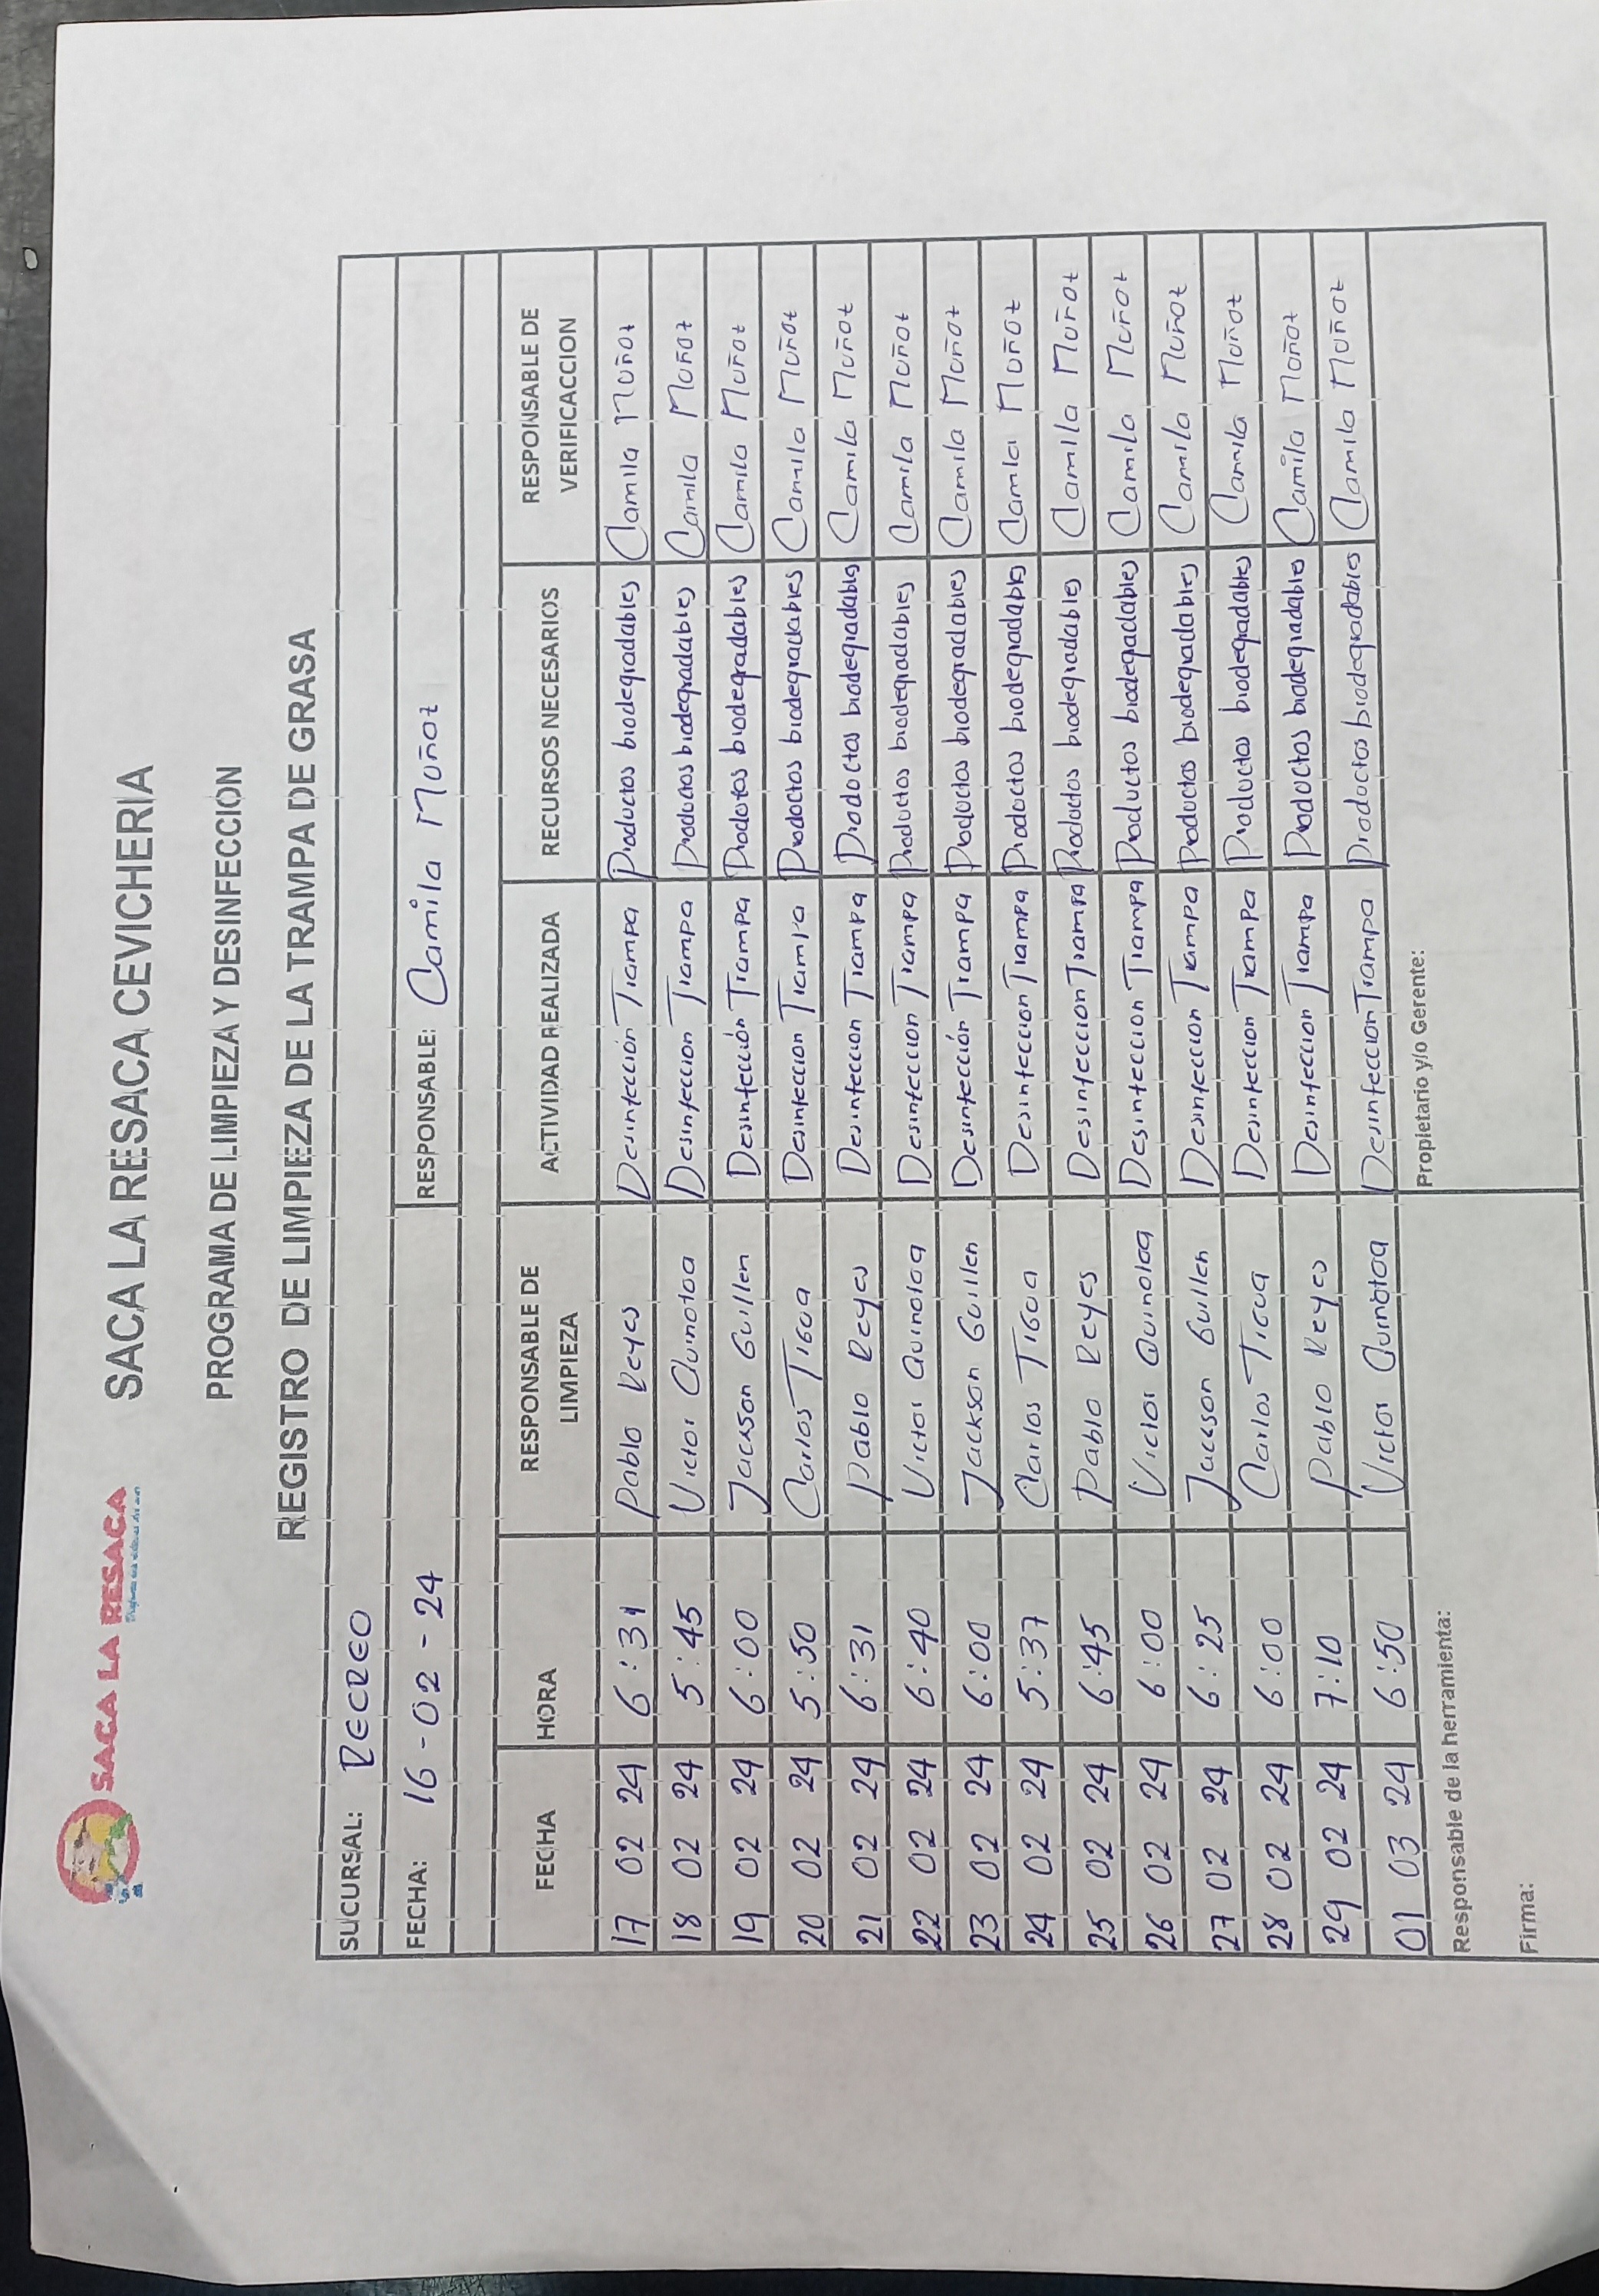 SACA LA RESACA
SACA LA RESACA CEVICHERIA
PROGRAMA DE LIMPIEZA Y DESINFECCION
REGISTRO DE LIMPIEZA DE LA TRAMPA DE GRASA
SUCURSAL: RECREO
FECHA: 16-02-24 RESPONSABLE: Camila Muñoz
FECHA HORA RESPONSABLE DE LIMPIEZA ACTIVIDAD REALIZADA RECURSOS NECESARIOS RESPONSABLE DE VERIFICACCION
17 02 24 6:31 Pablo Reyes Desinfección Trampa Productos biodegradables Camila Muñoz
18 02 24 5:45 Victor Quinotoa Desinfeccion Trampa Productos biodegradables Camila Muñoz
19 02 24 6:00 Jackson Guillen Desinfección Trampa Produtos biodegradables Camila Muñoz
20 02 24 5:50 Carlos Tigua Desinfeccion Trampa Productos biodegradables Camila Muñoz
21 02 24 6:31 Pablo Reyes Desinfeccion Trampa Productos biodegradables Camila Muñoz
22 02 24 6:40 Victor Quinoloa Desinfeccion Trampa Productos biodegradables Camila Muñoz
23 02 24 6:00 Jackson Guillen Desinfección Trampa Productos biodegradables Camila Muñoz
24 02 24 5:37 Carlos Tigua Desinfeccion Trampa Productos biodegradables Camla Muñoz
25 02 24 6:45 Pablo Reyes Desinfeccion Trampa Productos biodegradables Camila Muñoz
26 02 24 6:00 Victor Quinoloa Desinfeccion Trampa Productos biodegradables Camila Muñoz
27 02 24 6:25 Jacsson Guillen Desinfeccion Trampa Productos biodegradables Camila Muñoz
28 02 24 6:00 Carlos Tigua Desinfeccion Trampa Productos biodegradables Camila Muñoz
29 02 24 7:10 Pablo Reyes Desinfeccion Trampa Productos biodegradables Camila Muñoz
01 03 24 6:50 Victor Quinotoa Desinfeccion Trampa Productos biodegradables Camila Muñoz
Responsable de la herramienta: Propietario y/o Gerente:
Firma: